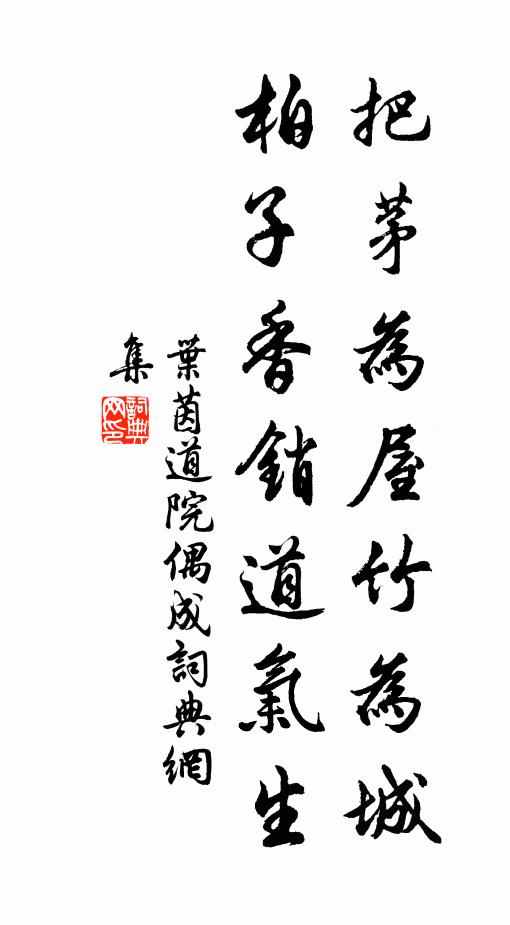 把茅為屋竹為城
柏子香銷道氣生
葉茵道院偶成詞典網
集
詞典網印